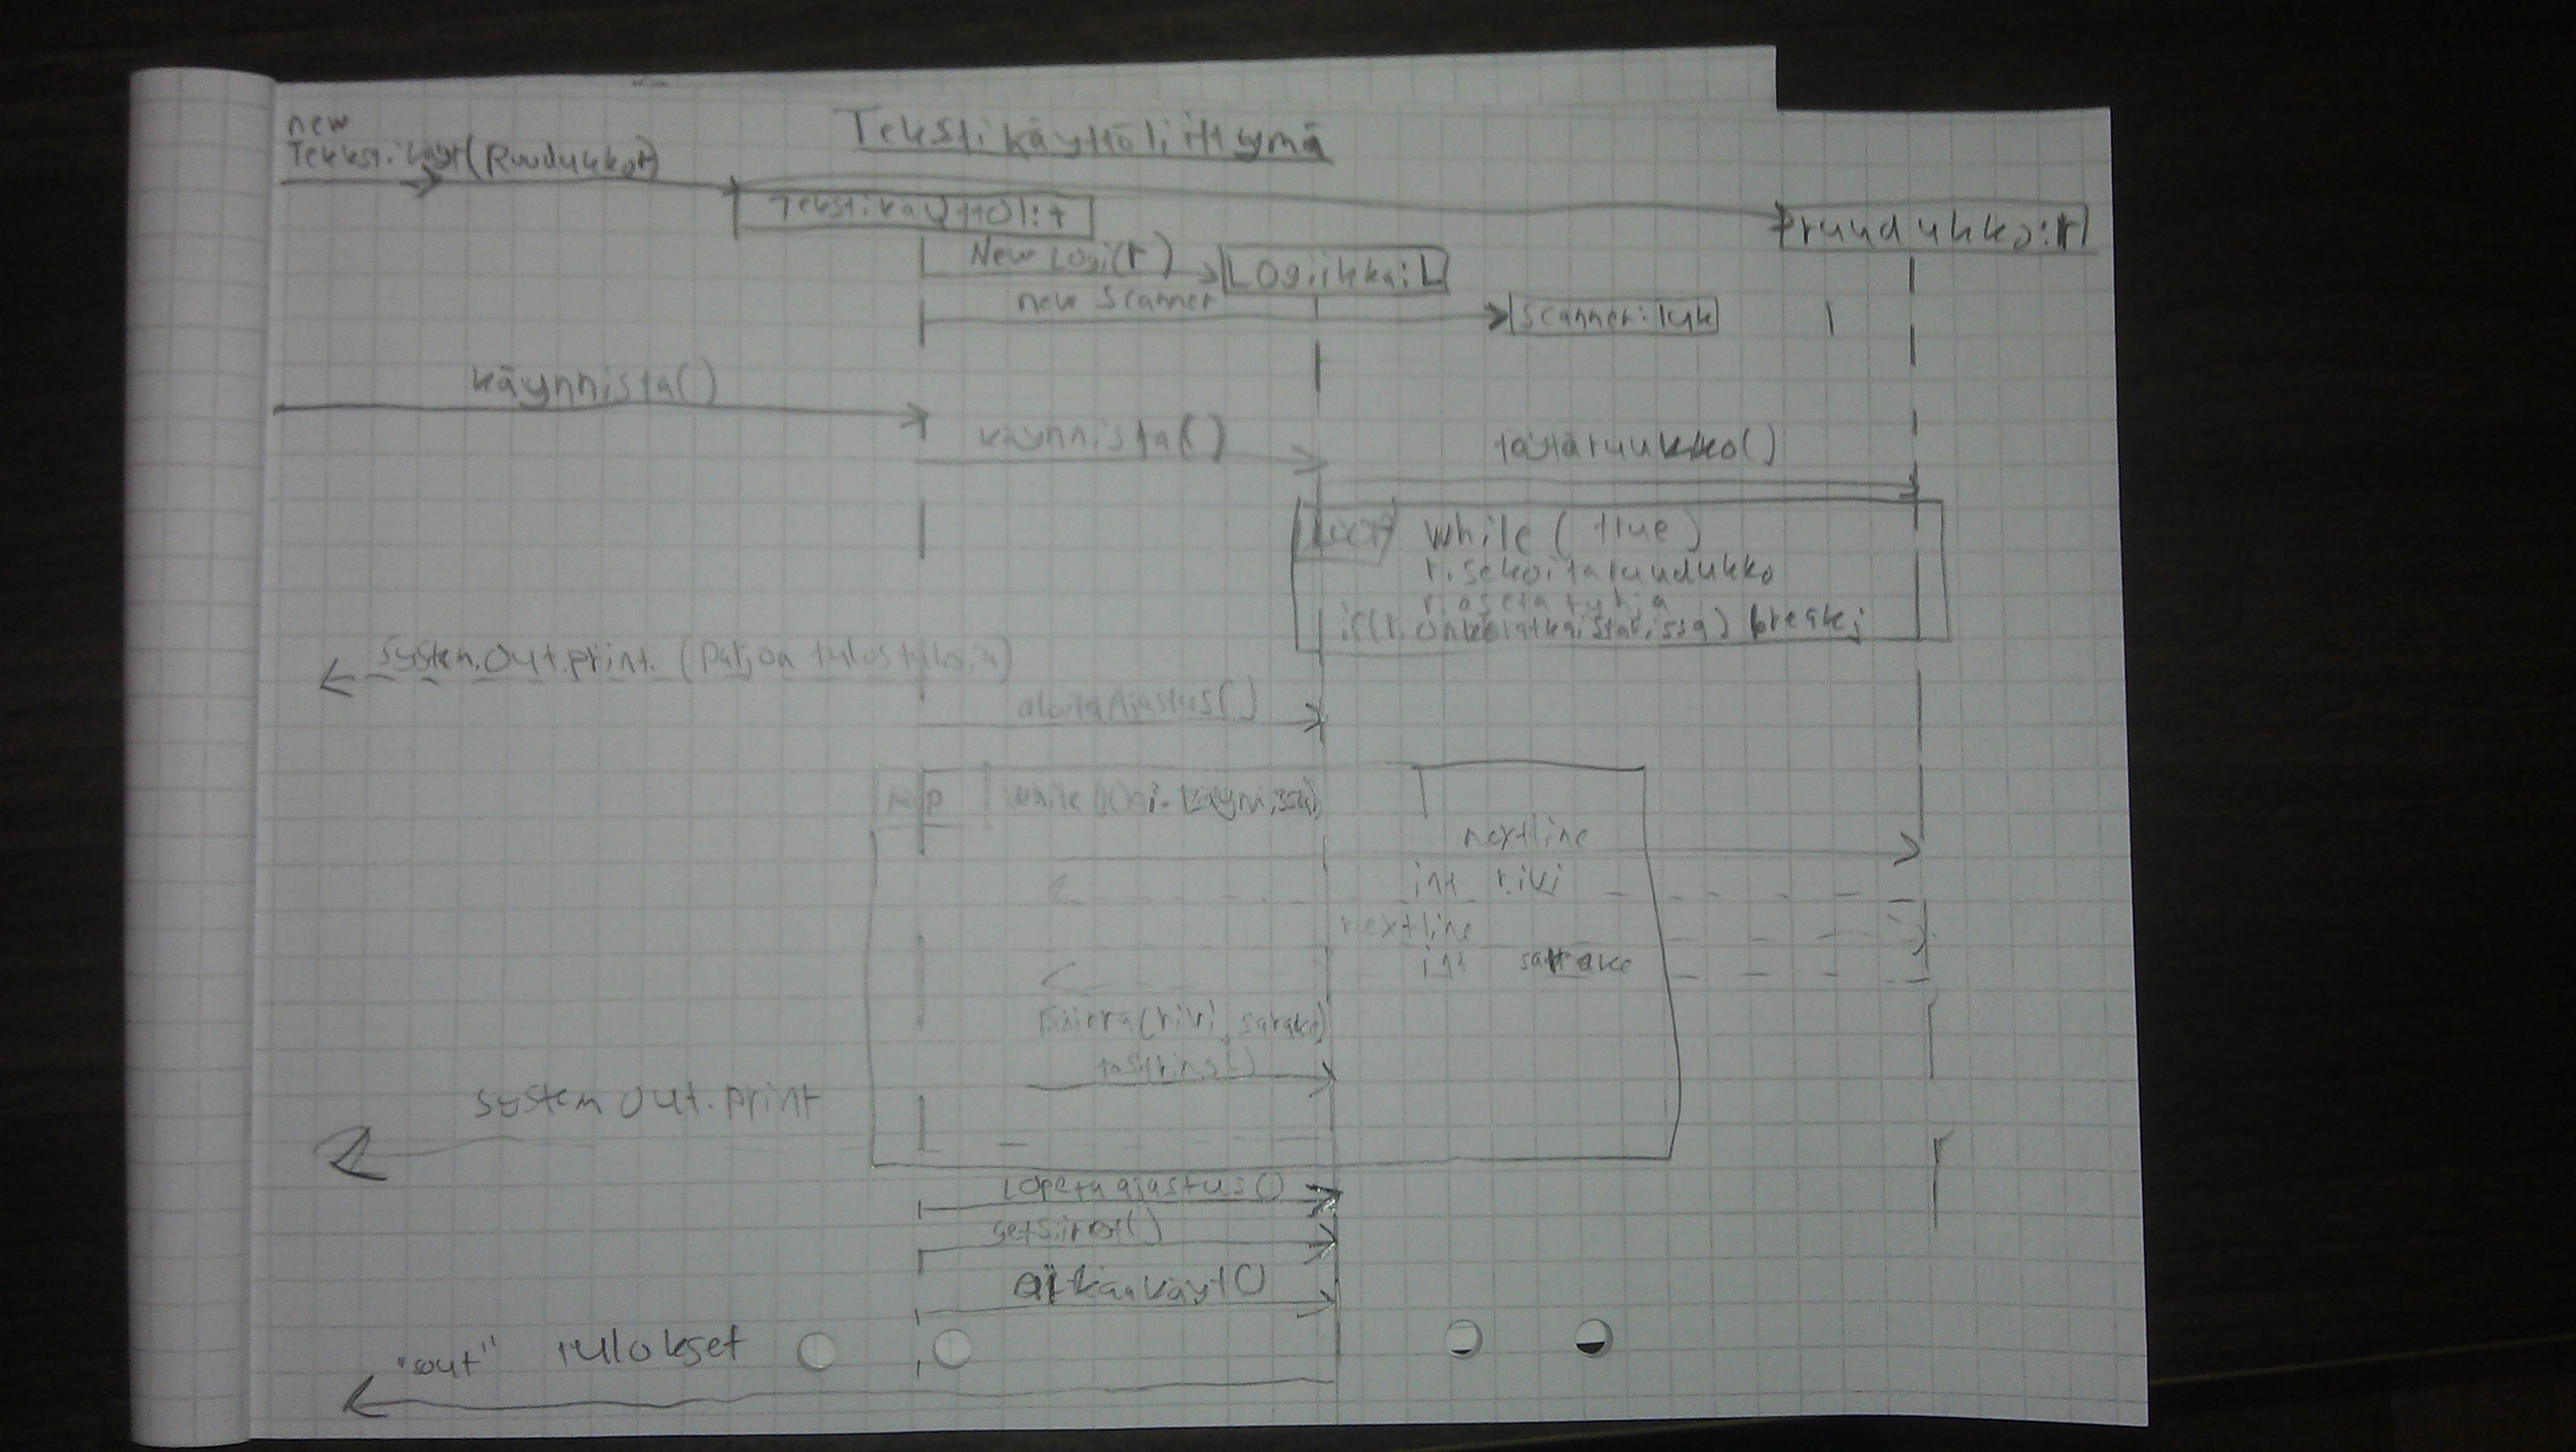 Tekstikäyttöliittymä
new
Tekksti käyt(Ruudukkor)
Tekstikäyttöl:t
ruudukko:r
New Logi(r)
Logiikka:L
new Scanner
Scanner:luk
käynnista()
käynnista()
täytäruukko()
loop while(true)
r.sekoitaruudukko
r.asetatyhja
if(r.onkoratkaistavissa) break;
system.out.print.
aloitaAjastus()
loop while(logi.käynissä)
nextline
int rivi
nextline
int sarake
siirra(rivi, sarake)
system out.print
Lopeta ajastus()
getsiirrot()
"sout" tulokset